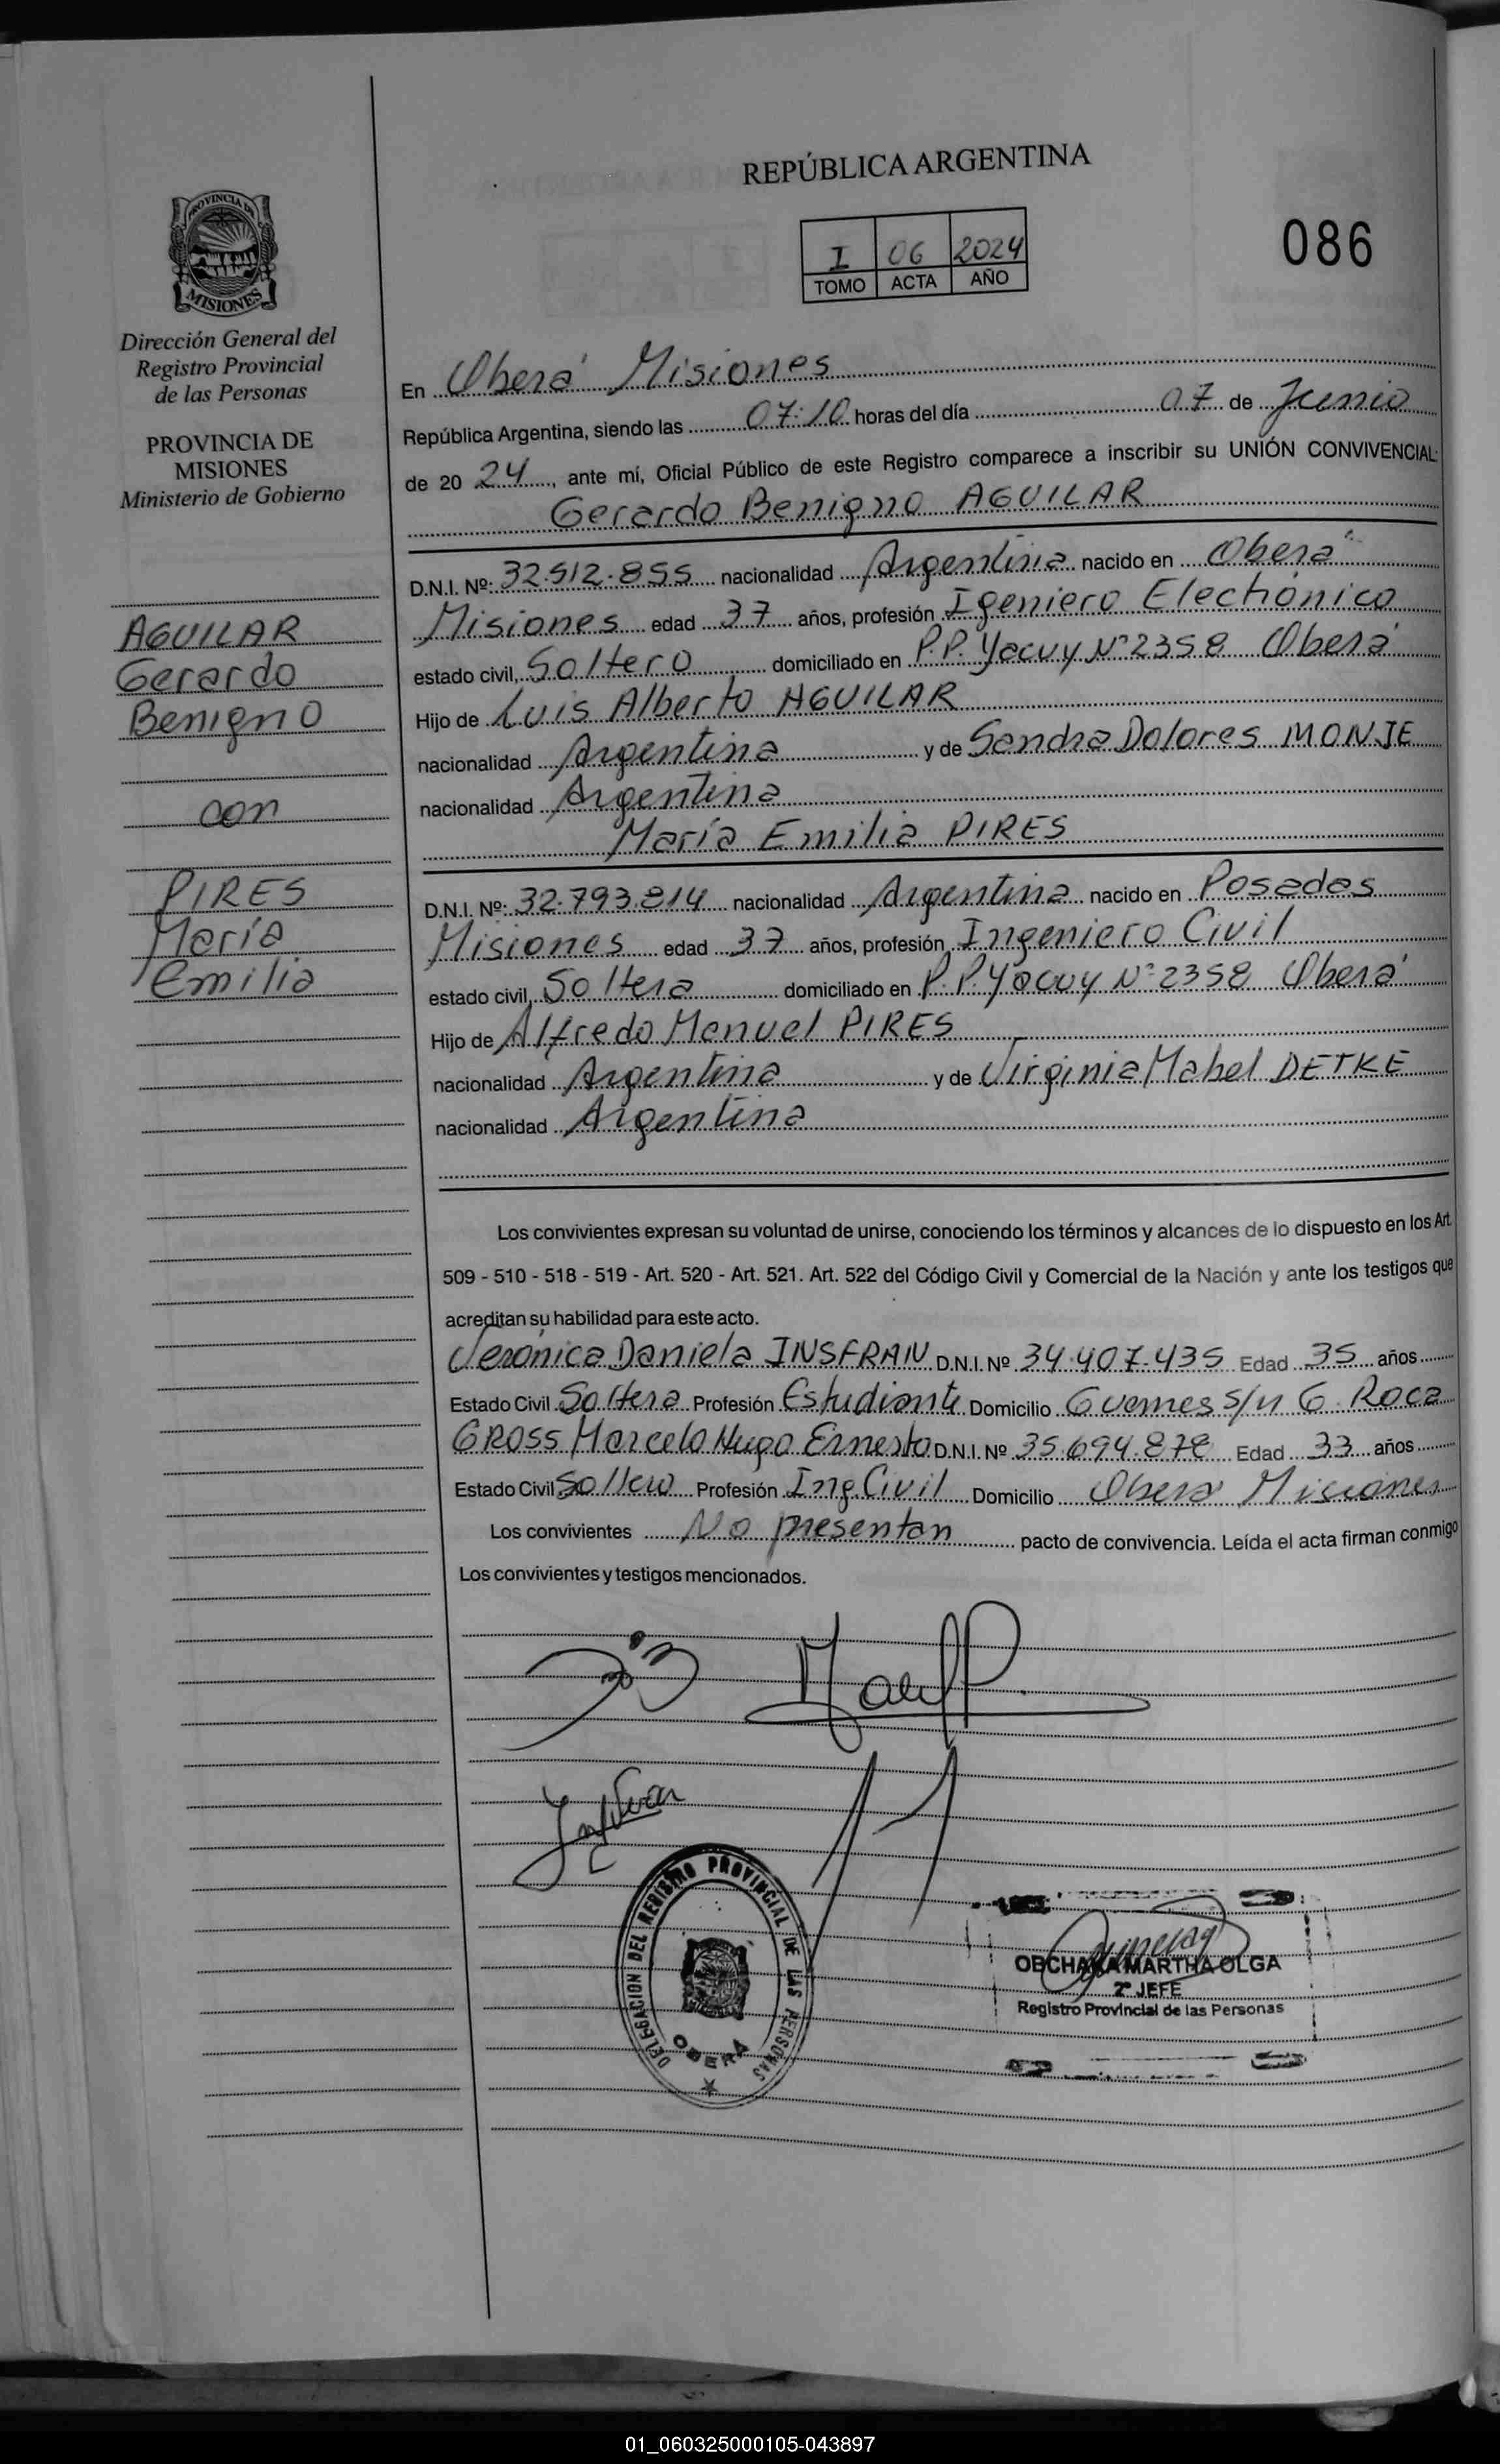 REPÚBLICA ARGENTINA
I 06 2024
TOMO ACTA AÑO
086
PROVINCIA DE
MISIONES
Dirección General del
Registro Provincial
de las Personas
PROVINCIA DE
MISIONES
Ministerio de Gobierno
AGUILAR
Gerardo
Benigno
con
PIRES
María
Emilia
En Oberá Misiones
República Argentina, siendo las 07:10 horas del día 07 de Junio
de 20 24, ante mí, Oficial Público de este Registro comparece a inscribir su UNIÓN CONVIVENCIAL:
Gerardo Benigno AGUILAR
D.N.I. Nº: 32.512.855 nacionalidad Argentina nacido en Oberá
Misiones edad 37 años, profesión Igeniero Electrónico
estado civil, Soltero domiciliado en P.P. Yacuy Nº 2358 Oberá
Hijo de Luis Alberto AGUILAR
nacionalidad Argentina y de Sandra Dolores MONJE
nacionalidad Argentina
María Emilia PIRES
D.N.I. Nº: 32.793.814 nacionalidad Argentina nacido en Posadas
Misiones edad 37 años, profesión Ingeniero Civil
estado civil, Soltera domiciliado en P.P. Yacuy Nº 2358 Oberá
Hijo de Alfredo Manuel PIRES
nacionalidad Argentina y de Virginia Mabel DETKE
nacionalidad Argentina
Los convivientes expresan su voluntad de unirse, conociendo los términos y alcances de lo dispuesto en los Art.
509 - 510 - 518 - 519 - Art. 520 - Art. 521. Art. 522 del Código Civil y Comercial de la Nación y ante los testigos que
acreditan su habilidad para este acto.
Verónica Daniela INSFRAN D.N.I. Nº 34.407.435 Edad 35 años
Estado Civil Soltera Profesión Estudiante Domicilio Guemes s/n G. Roca
GROSS Marcelo Hugo Ernesto D.N.I. Nº 35.694.878 Edad 33 años
Estado Civil Soltero Profesión Ing. Civil Domicilio Oberá Misiones
Los convivientes No presentan pacto de convivencia. Leída el acta firman conmigo
Los convivientes y testigos mencionados.
DELEGACION DEL REGISTRO PROVINCIAL DE LAS PERSONAS
OBERA
MARTHA OLGA
2º JEFE
Registro Provincial de las Personas
01_060325000105-043897